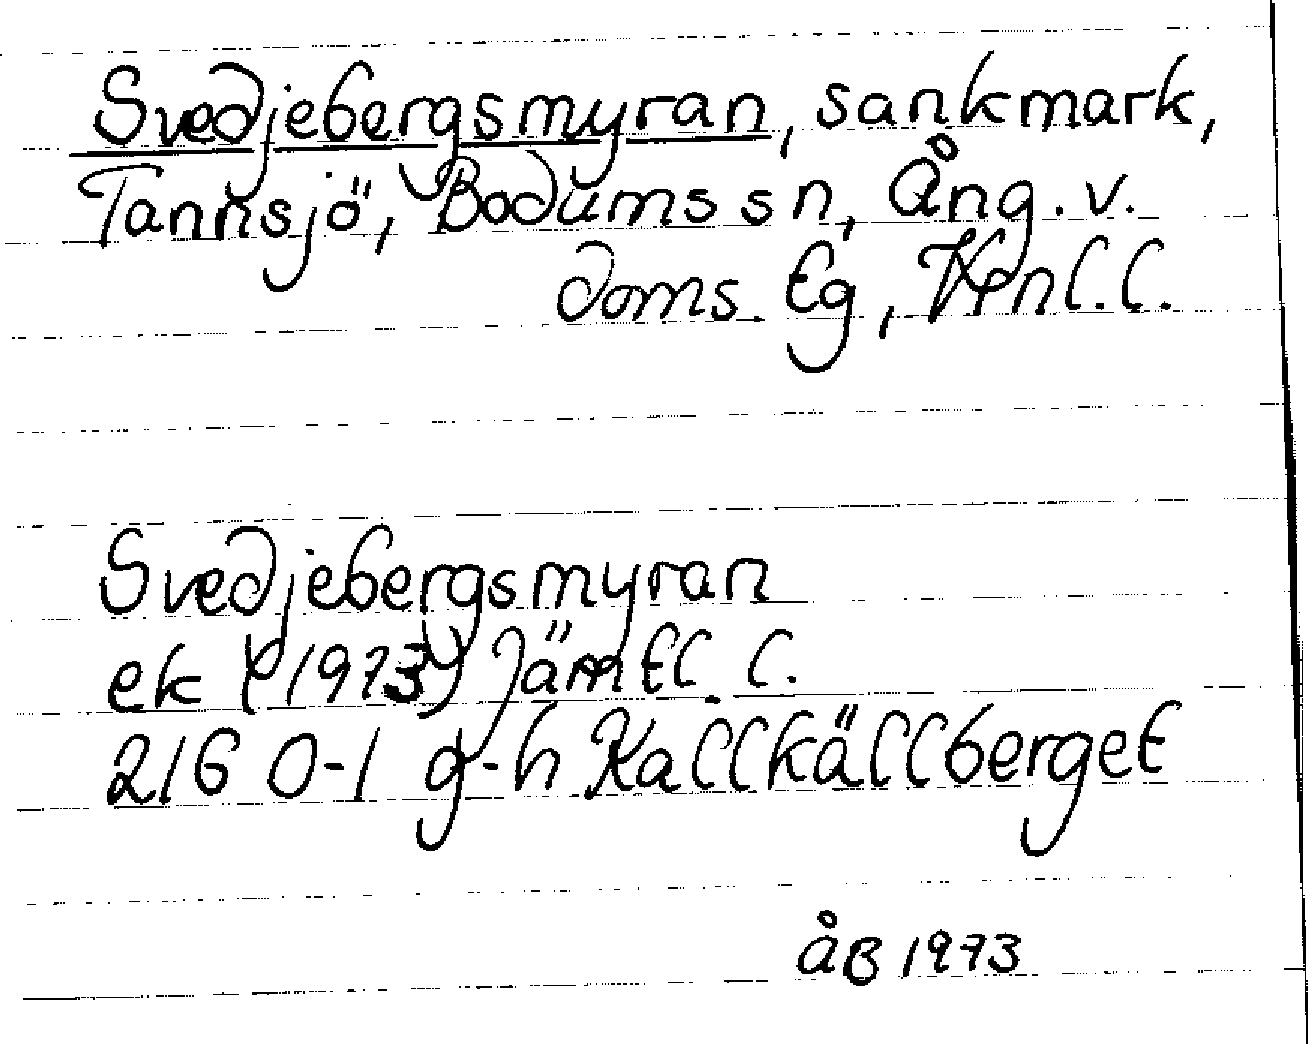 Svedjebergsmyran, sankmark,
Tannsjö, Bodums sn, Ång.v.
doms. tg, Vpnl.l.
Svedjebergsmyran
ek (1973) Jämtl. l.
216 0-1 g-h Kallkällberget
åB 1973